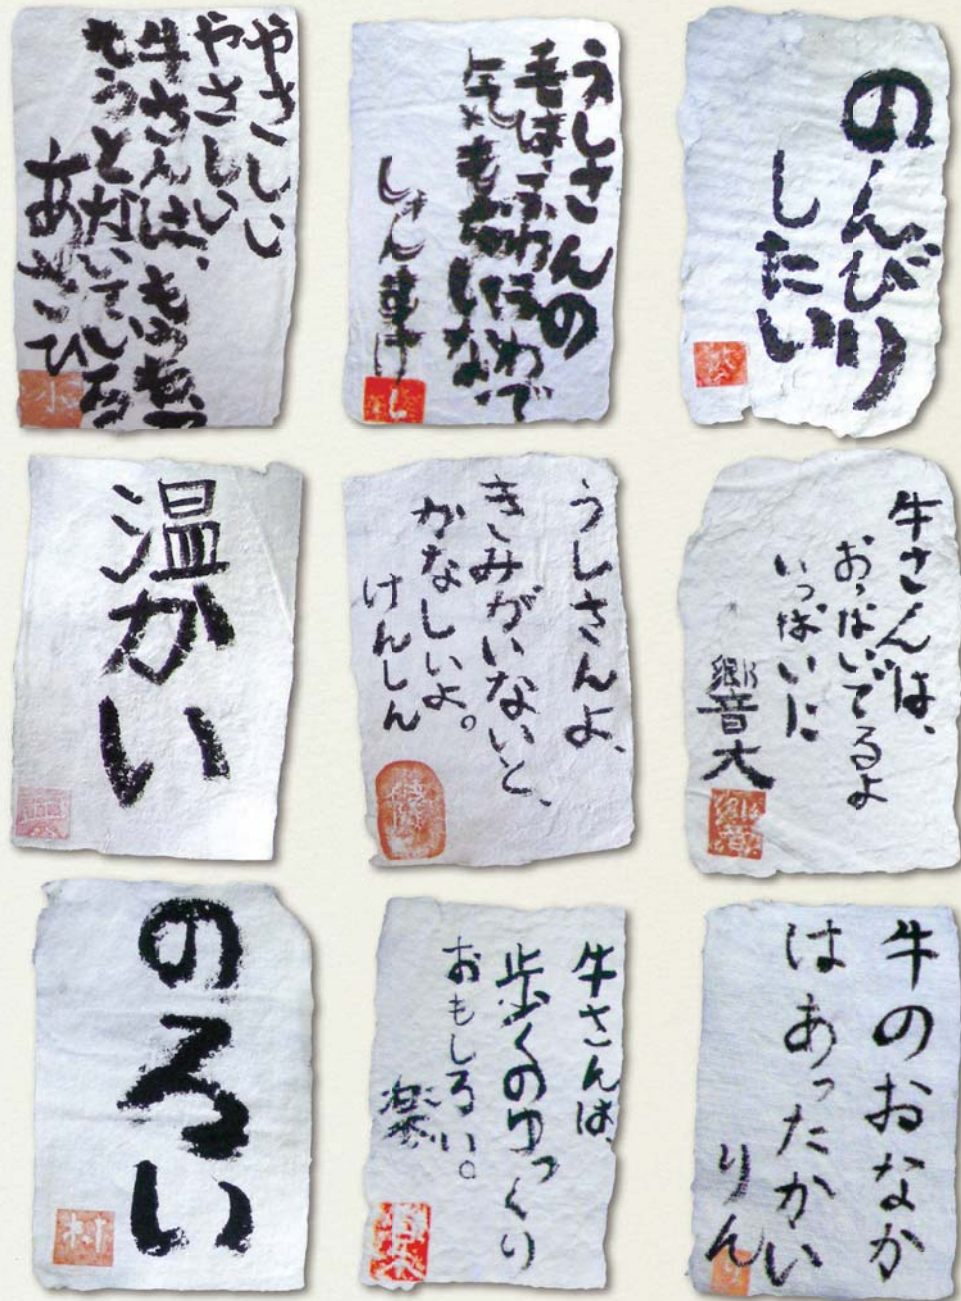 やさしい
やさしい、
牛さんは、
もうとないている
あさひ
うしさんの
毛は、ふわふわで
気もちいいな
のんびり
したい
温かい
うしさんよ、
きみがいないと、
かなしいよ。
けんしん
牛さんは、
いっぱいに
響大
のろい
村
牛さんは、
歩くのゆっくり
おもしろい。
楽
牛のおなか
はあったかい
りん